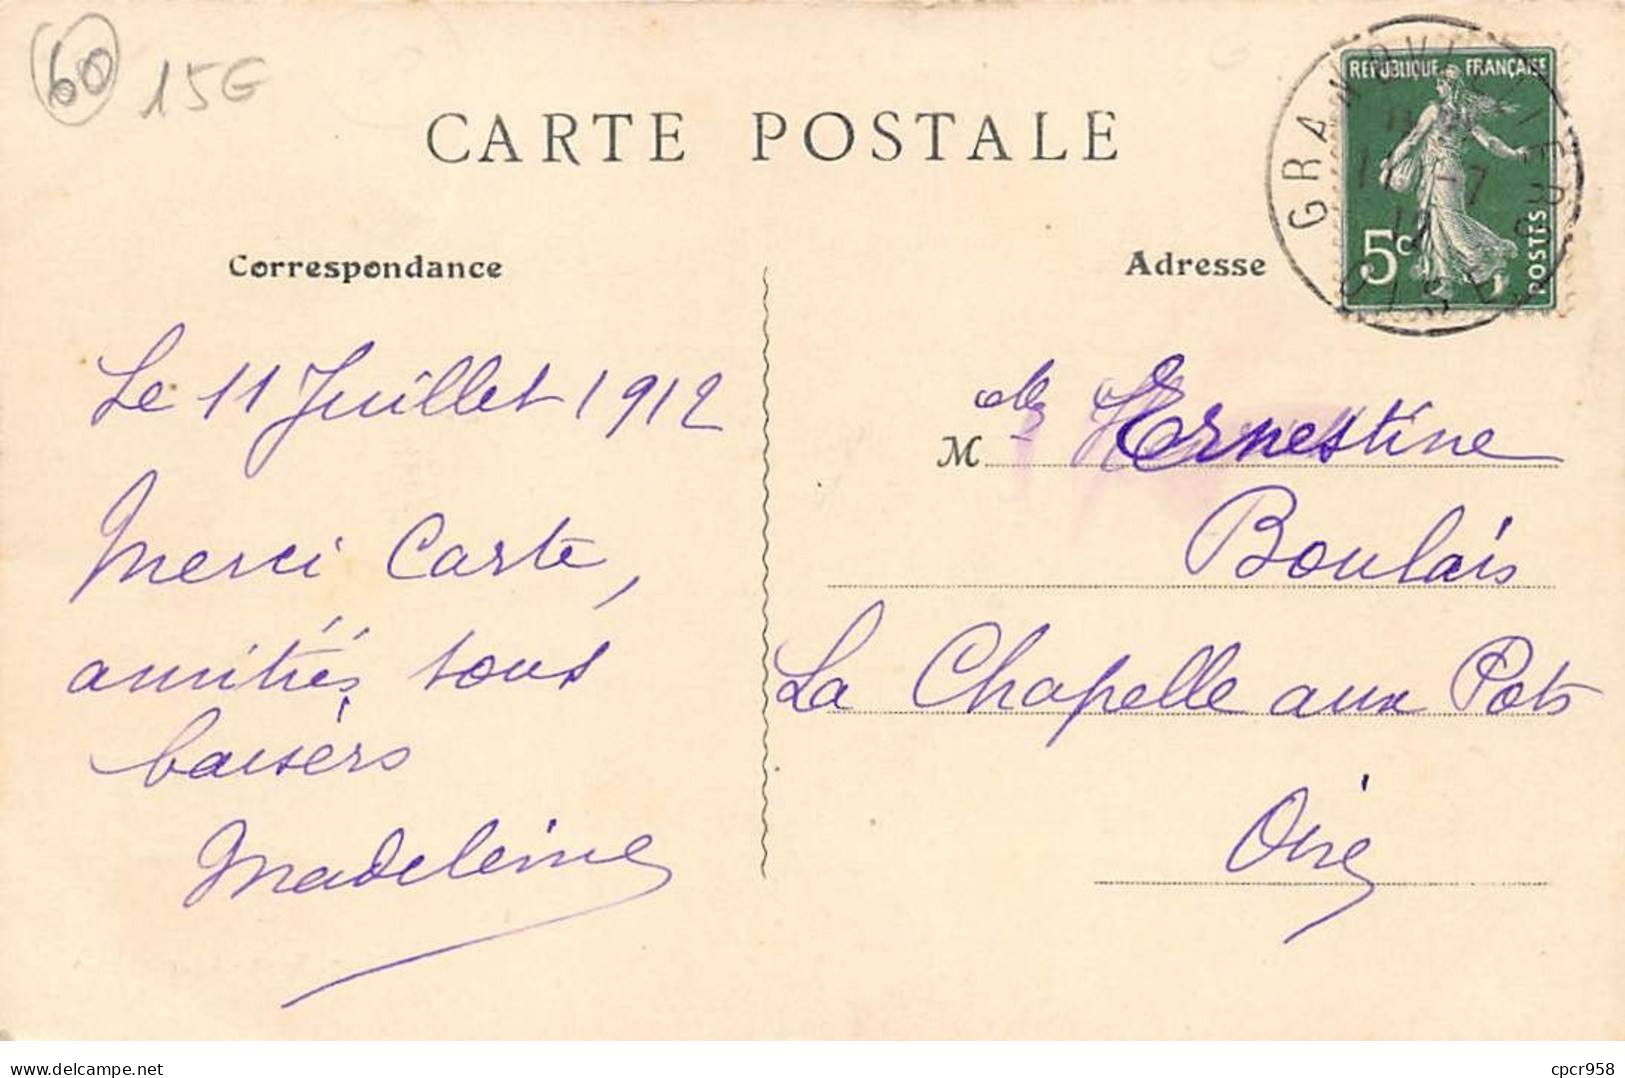 60 15€
CARTE POSTALE
RÉPUBLIQUE FRANÇAISE
5c
POSTES
GRANDVILLIERS
11 -7
12
OISE
Correspondance
Adresse
Le 11 Juillet 1912
Merci Carte,
amitiés tous
baisers
Madeleine
Mlle Ernestine
Boulais
La Chapelle aux Pots
Oise
delcampe.net
cpcr958